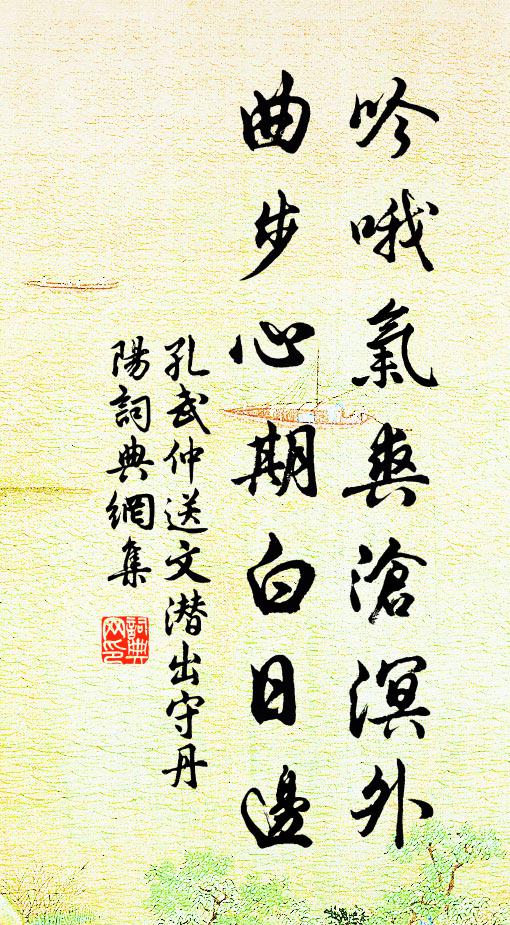 吟哦氣爽滄溟外
曲步心期白日邊
孔武仲送文潜出守丹
陽詞典網集
詞典
网印